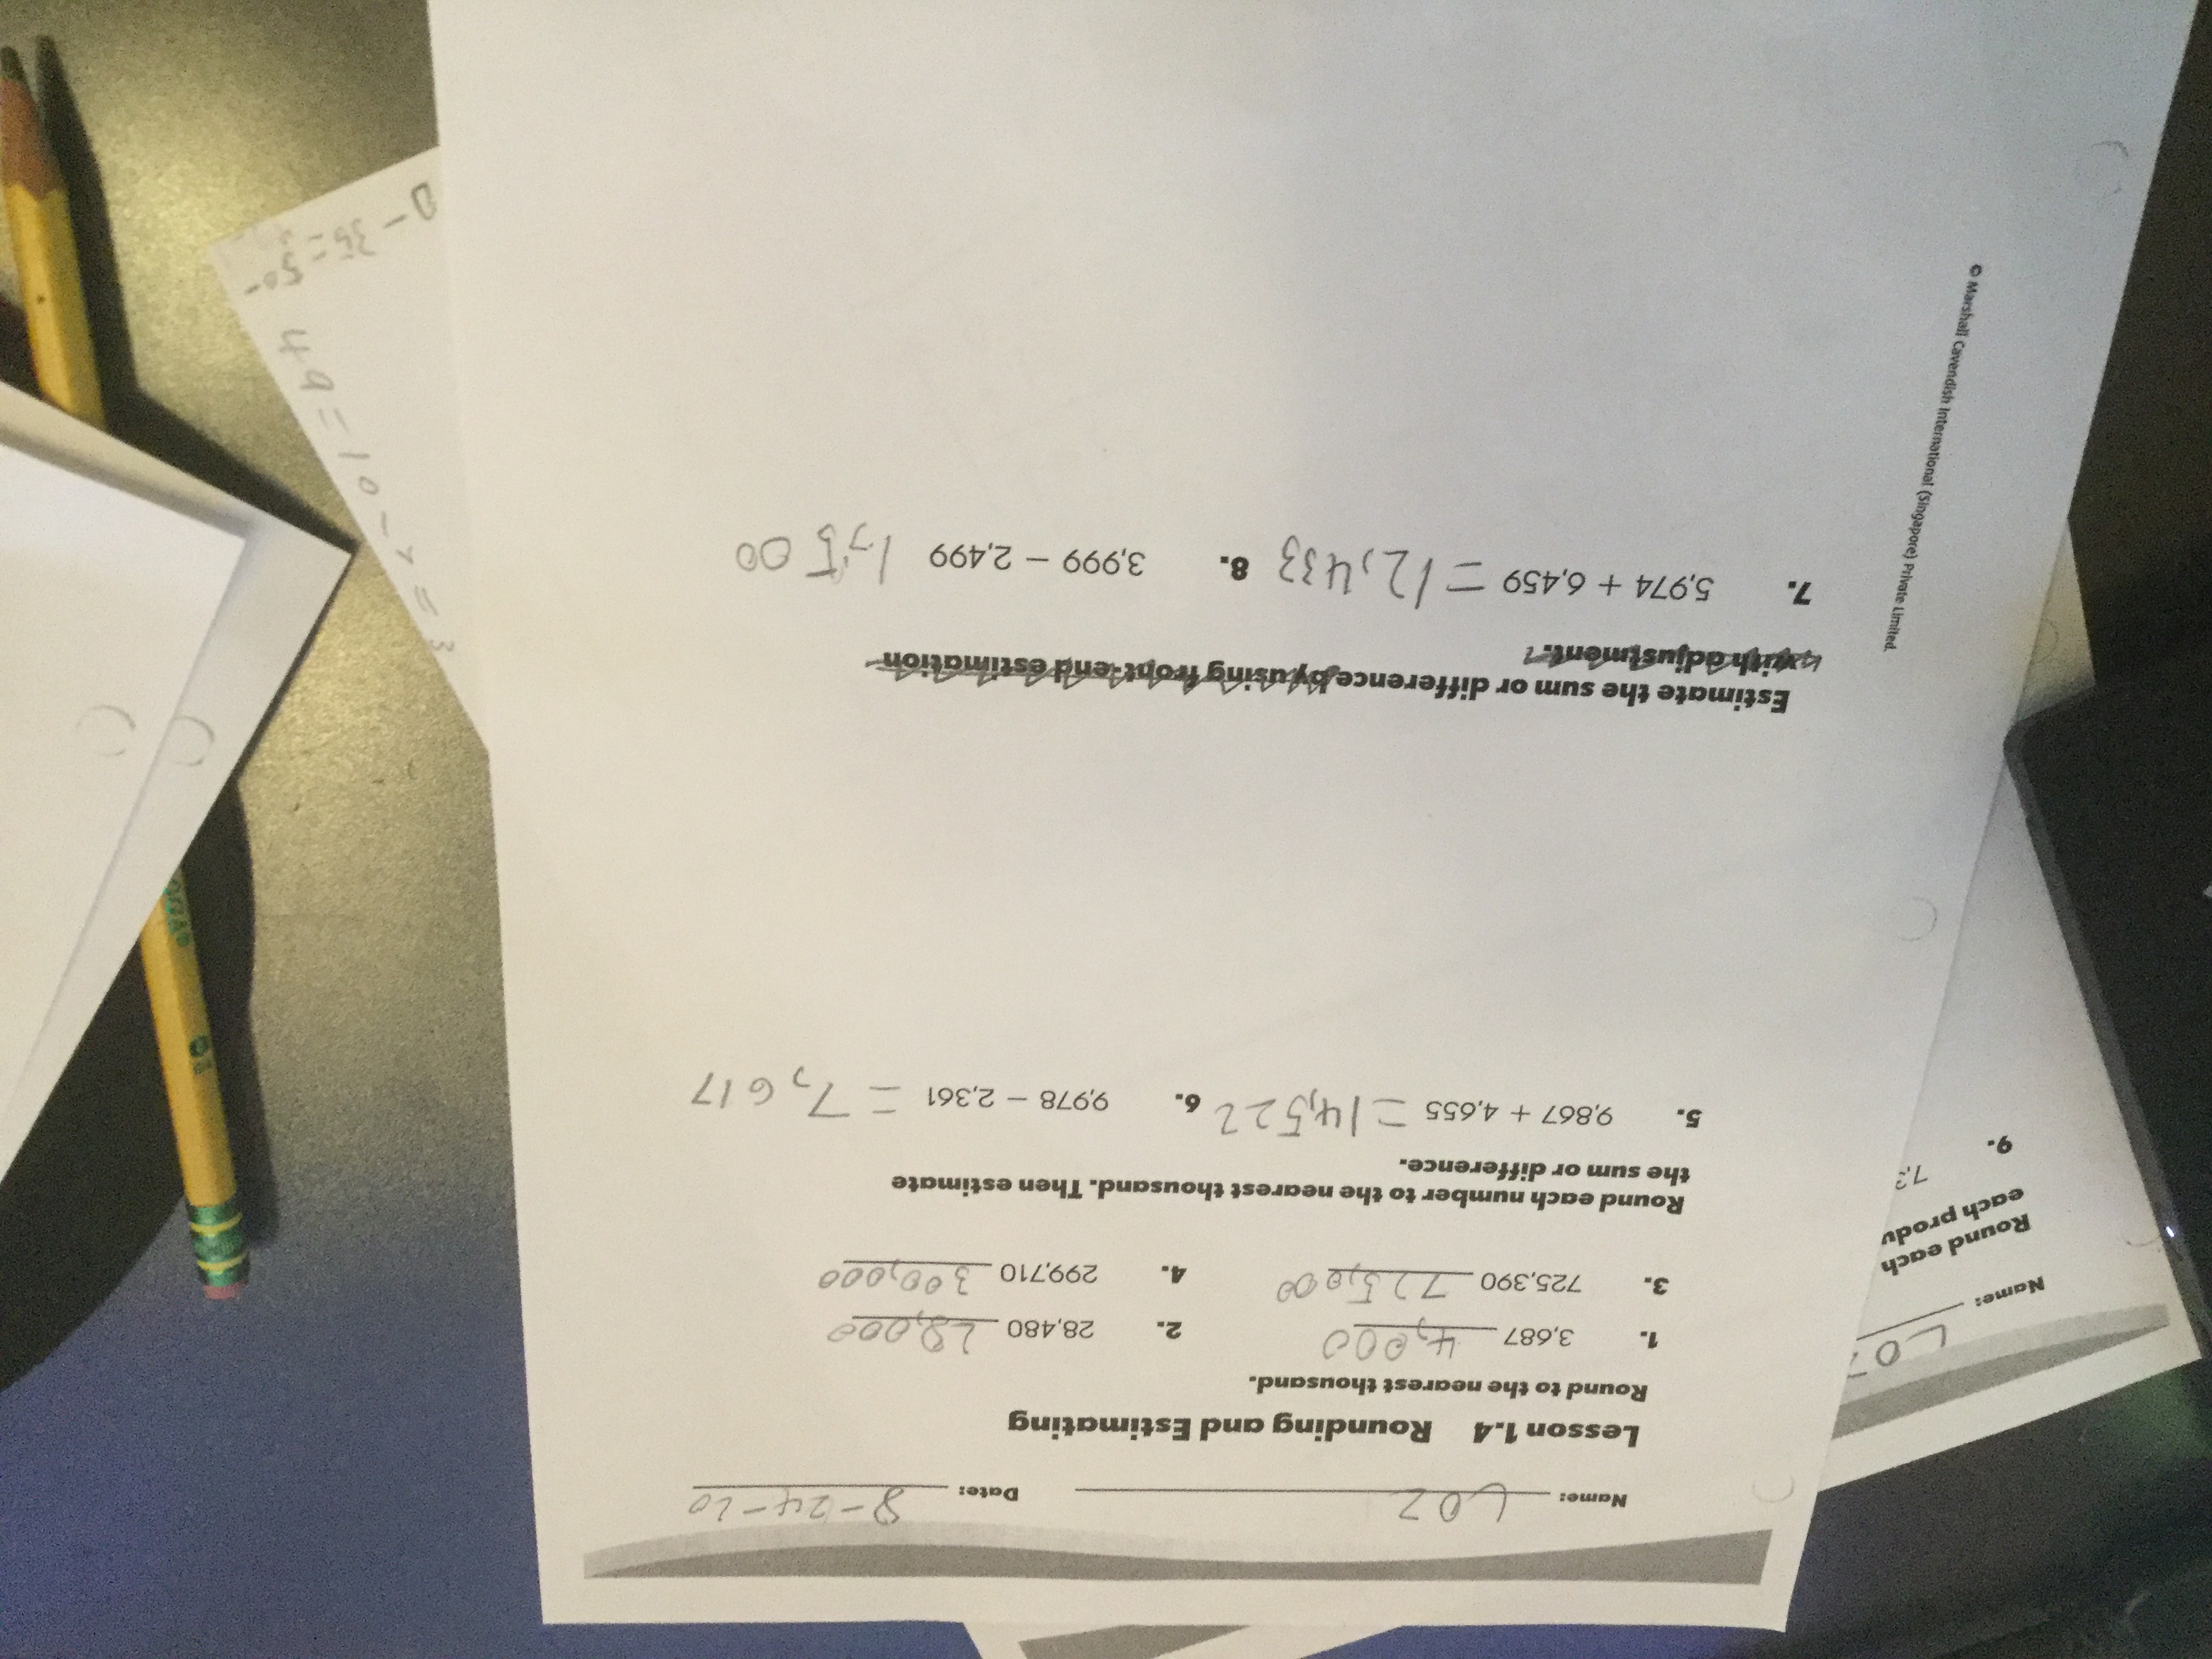 Name: LOZ Date: 8-24-20
Lesson 1.4 Rounding and Estimating
Round to the nearest thousand.
1. 3,687 4,000 2. 28,480 28,000
3. 725,390 725,000 4. 299,710 300,000
Round each number to the nearest thousand. Then estimate
the sum or difference.
5. 9,867 + 4,655 = 14,522 6. 9,978 − 2,361 = 7,617
Estimate the sum or difference by using front-end estimation
with adjustment.
7. 5,974 + 6,459 = 12,433 8. 3,999 − 2,499 1,500
© Marshall Cavendish International (Singapore) Private Limited.
Name: LOZ
Round each
each produ
9. 7,3
49 = 10 - 7 = 3
0 - 35 = 50-